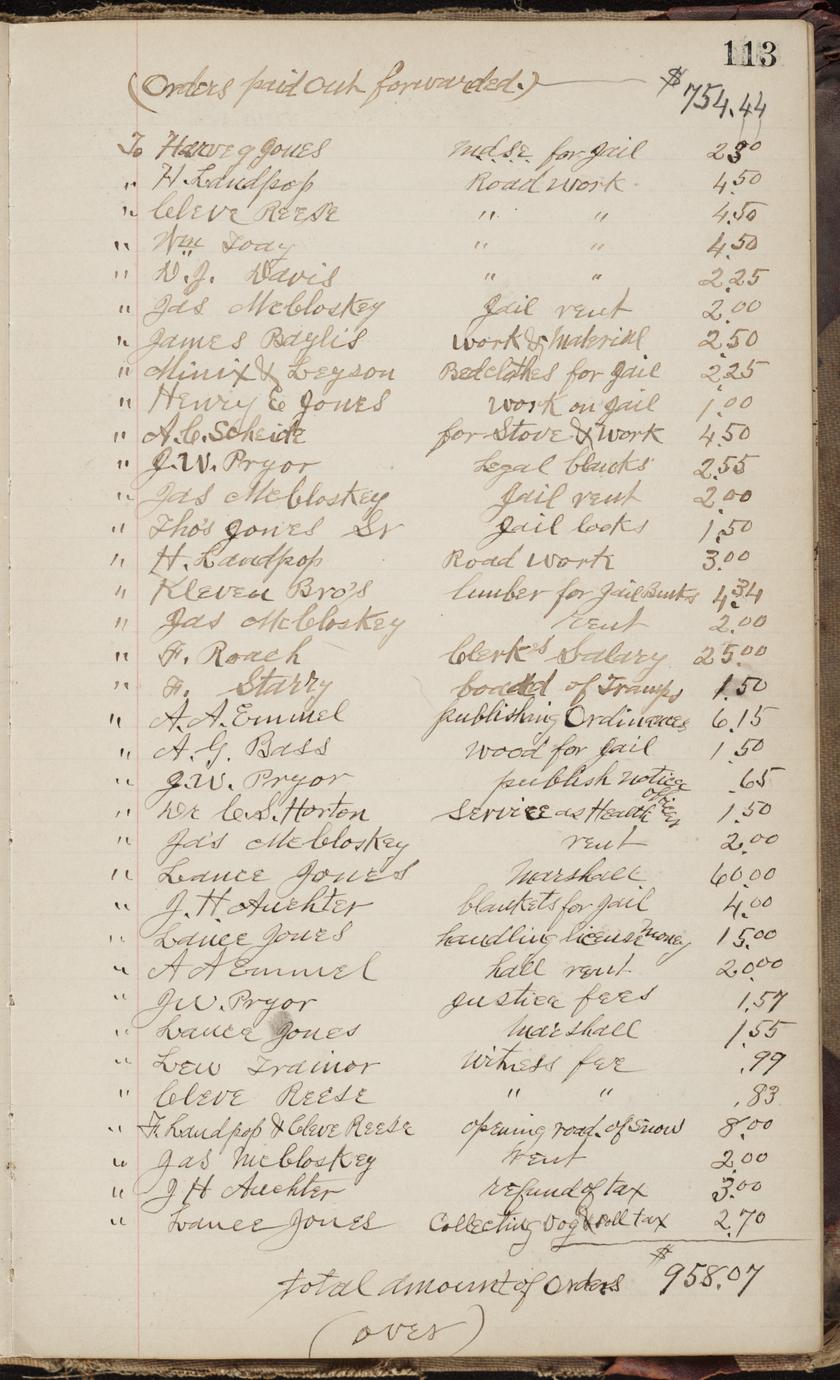 113
(Orders paid out forwarded.) $754.44
To Harvey Jones mdse. for Jail 23.00
" H. Landpop Road Work 4.50
" Cleve Reese " " 4.50
" Wm Tody " " 4.50
" D.J. Davis " " 2.25
" Jas McCloskey Jail rent 2.00
" James Baylis work & Material 2.50
" Minix & Leyson Bedclothes for Jail 2.25
" Henry E Jones Work on Jail 1.00
" A.C. Scheide for Stove & Work 4.50
" J.W. Pryor Legal blanks 2.55
" Jas McCloskey Jail rent 2.00
" Tho's Jones Sr Jail locks 1.50
" H. Landpop Road Work 3.00
" Kleven Bro's lumber for Jail Bunks 4.34
" Jas McCloskey rent 2.00
" F. Roach Clerk's Salary 25.00
" F. Starry board of Tramps 1.50
" A.A. Emmel publishing Ordinances 6.15
" A.G. Bass wood for Jail 1.50
" J.W. Pryor publish notice .65
" Dr C.S. Horton Service as Health officer 1.50
" Ja's McCloskey rent 2.00
" Lance Jones Marshall 60.00
" J.H Auchter blankets for Jail 4.00
" Lance Jones handling license money 15.00
" A A Emmel hall rent 20.00
" J.W. Pryor Justice fees 1.57
" Lance Jones Marshall 1.55
" Lew Trainor Witness fee .99
" Cleve Reese " " .83
" F. Landpop & Cleve Reese opening road of snow 8.00
" Jas McCloskey rent 2.00
" J H Auchter refund of tax 3.00
" Lance Jones Collecting Dog & Poll tax 2.70
total amount of Orders $958.07
(over)